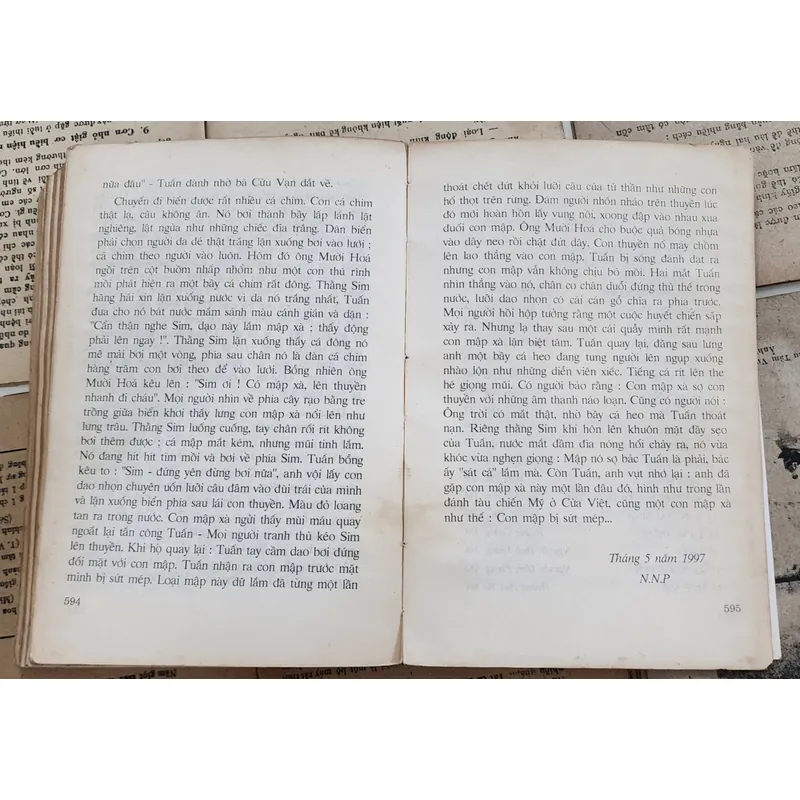 nữa đâu" - Tuấn đành nhờ bà Cửu Vạn dắt về.
Chuyến đi biển được rất nhiều cá chim. Con cá chim
thật lạ, câu không ăn. Nó bơi thành bầy lấp lánh lật
nghiêng, lật ngửa như những chiếc đĩa trắng. Dân biển
phải chọn người da dẻ thật trắng lặn xuống bơi vào lưới ;
cá chim theo người vào luôn. Hôm đó ông Mười Hoá
ngồi trên cột buồm nhấp nhổm như một con thú rình
mồi phát hiện ra một bầy cá chim rất đông. Thằng Sim
hăng hái xin lặn xuống nước vì da nó trắng nhất, Tuấn
đưa cho nó bát nước mắm sánh màu cánh gián và dặn :
"Cẩn thận nghe Sim, dạo này lắm mập xà ; thấy động
phải lên ngay !". Thằng Sim lặn xuống thấy cá đông nó
mê mải bơi một vòng, phía sau chân nó là đàn cá chim
hàng trăm con bơi theo để vào lưới. Bỗng nhiên ông
Mười Hoá kêu lên : "Sim ơi ! Có mập xà, lên thuyền
nhanh đi cháu". Mọi người nhìn về phía cây rạo bằng tre
trồng giữa biển khơi thấy lưng con mập xà nổi lên như
lưng trâu. Thằng Sim luống cuống, tay chân rối rít không
bơi thêm được ; cá mập mắt kém, nhưng mũi tinh lắm.
Nó đang hít hít tìm mồi và bơi về phía Sim. Tuấn bỗng
kêu to : "Sim - đứng yên đừng bơi nữa", anh vội lấy con
dao nhọn chuyên uốn lưỡi câu đâm vào đùi trái của mình
và lặn xuống biển phía sau lái con thuyền. Màu đỏ loang
tan ra trong nước. Con mập xà ngửi thấy mùi máu quay
ngoắt lại tấn công Tuấn - Mọi người tranh thủ kéo Sim
lên thuyền. Khi họ quay lại : Tuấn tay cầm dao bơi đứng
đối mặt với con mập. Tuấn nhận ra con mập trước mặt
mình bị sứt mép. Loại mập này dữ lắm đã từng một lần
594
thoát chết dứt khỏi lưỡi câu của tử thần như những con
hổ thọt trên rừng. Đám người nhốn nháo trên thuyền lúc
đó mới hoàn hồn lấy vung nồi, xoong đập vào nhau xua
đuổi con mập. Ông Mười Hoá cho buộc quả bóng nhựa
vào dây neo rồi chặt đứt dây. Con thuyền nổ máy chồm
lên lao thẳng vào con mập. Tuấn bị sóng đánh dạt ra
nhưng con mập vẫn không chịu bỏ mồi. Hai mắt Tuấn
nhìn thẳng vào nó, chân co chân duỗi đứng thủ thế trong
nước, lưỡi dao nhọn có cái cán gỗ chìa ra phía trước.
Mọi người hồi hộp tưởng rằng một cuộc huyết chiến sắp
xảy ra. Nhưng lạ thay sau một cái quẫy mình rất mạnh
con mập xà lặn biệt tăm. Tuấn quay lại, đằng sau lưng
anh một bầy cá heo đang tung người lên ngụp xuống
nhào lộn như những diễn viên xiếc. Tiếng cá rít lên the
thé giọng mũi. Có người bảo rằng : Con mập xà sợ con
thuyền với những âm thanh náo loạn. Cũng có người nói :
Ông trời có mắt thật, nhờ bầy cá heo mà Tuấn thoát
nạn. Riêng thằng Sim khi hôn lên khuôn mặt đầy sẹo
của Tuấn, nước mắt đầm đìa nóng hổi chảy ra, nó vừa
khóc vừa nghẹn giọng : Mập nó sợ bác Tuấn là phải, bác
ấy "sát cá" lắm mà. Còn Tuấn, anh vụt nhớ lại : anh đã
gặp con mập xà này một lần đâu đó, hình như trong lần
đánh tàu chiến Mỹ ở Cửa Việt, cũng một con mập xà
như thế : Con mập bị sứt mép...
Tháng 5 năm 1997
N.N.P
595